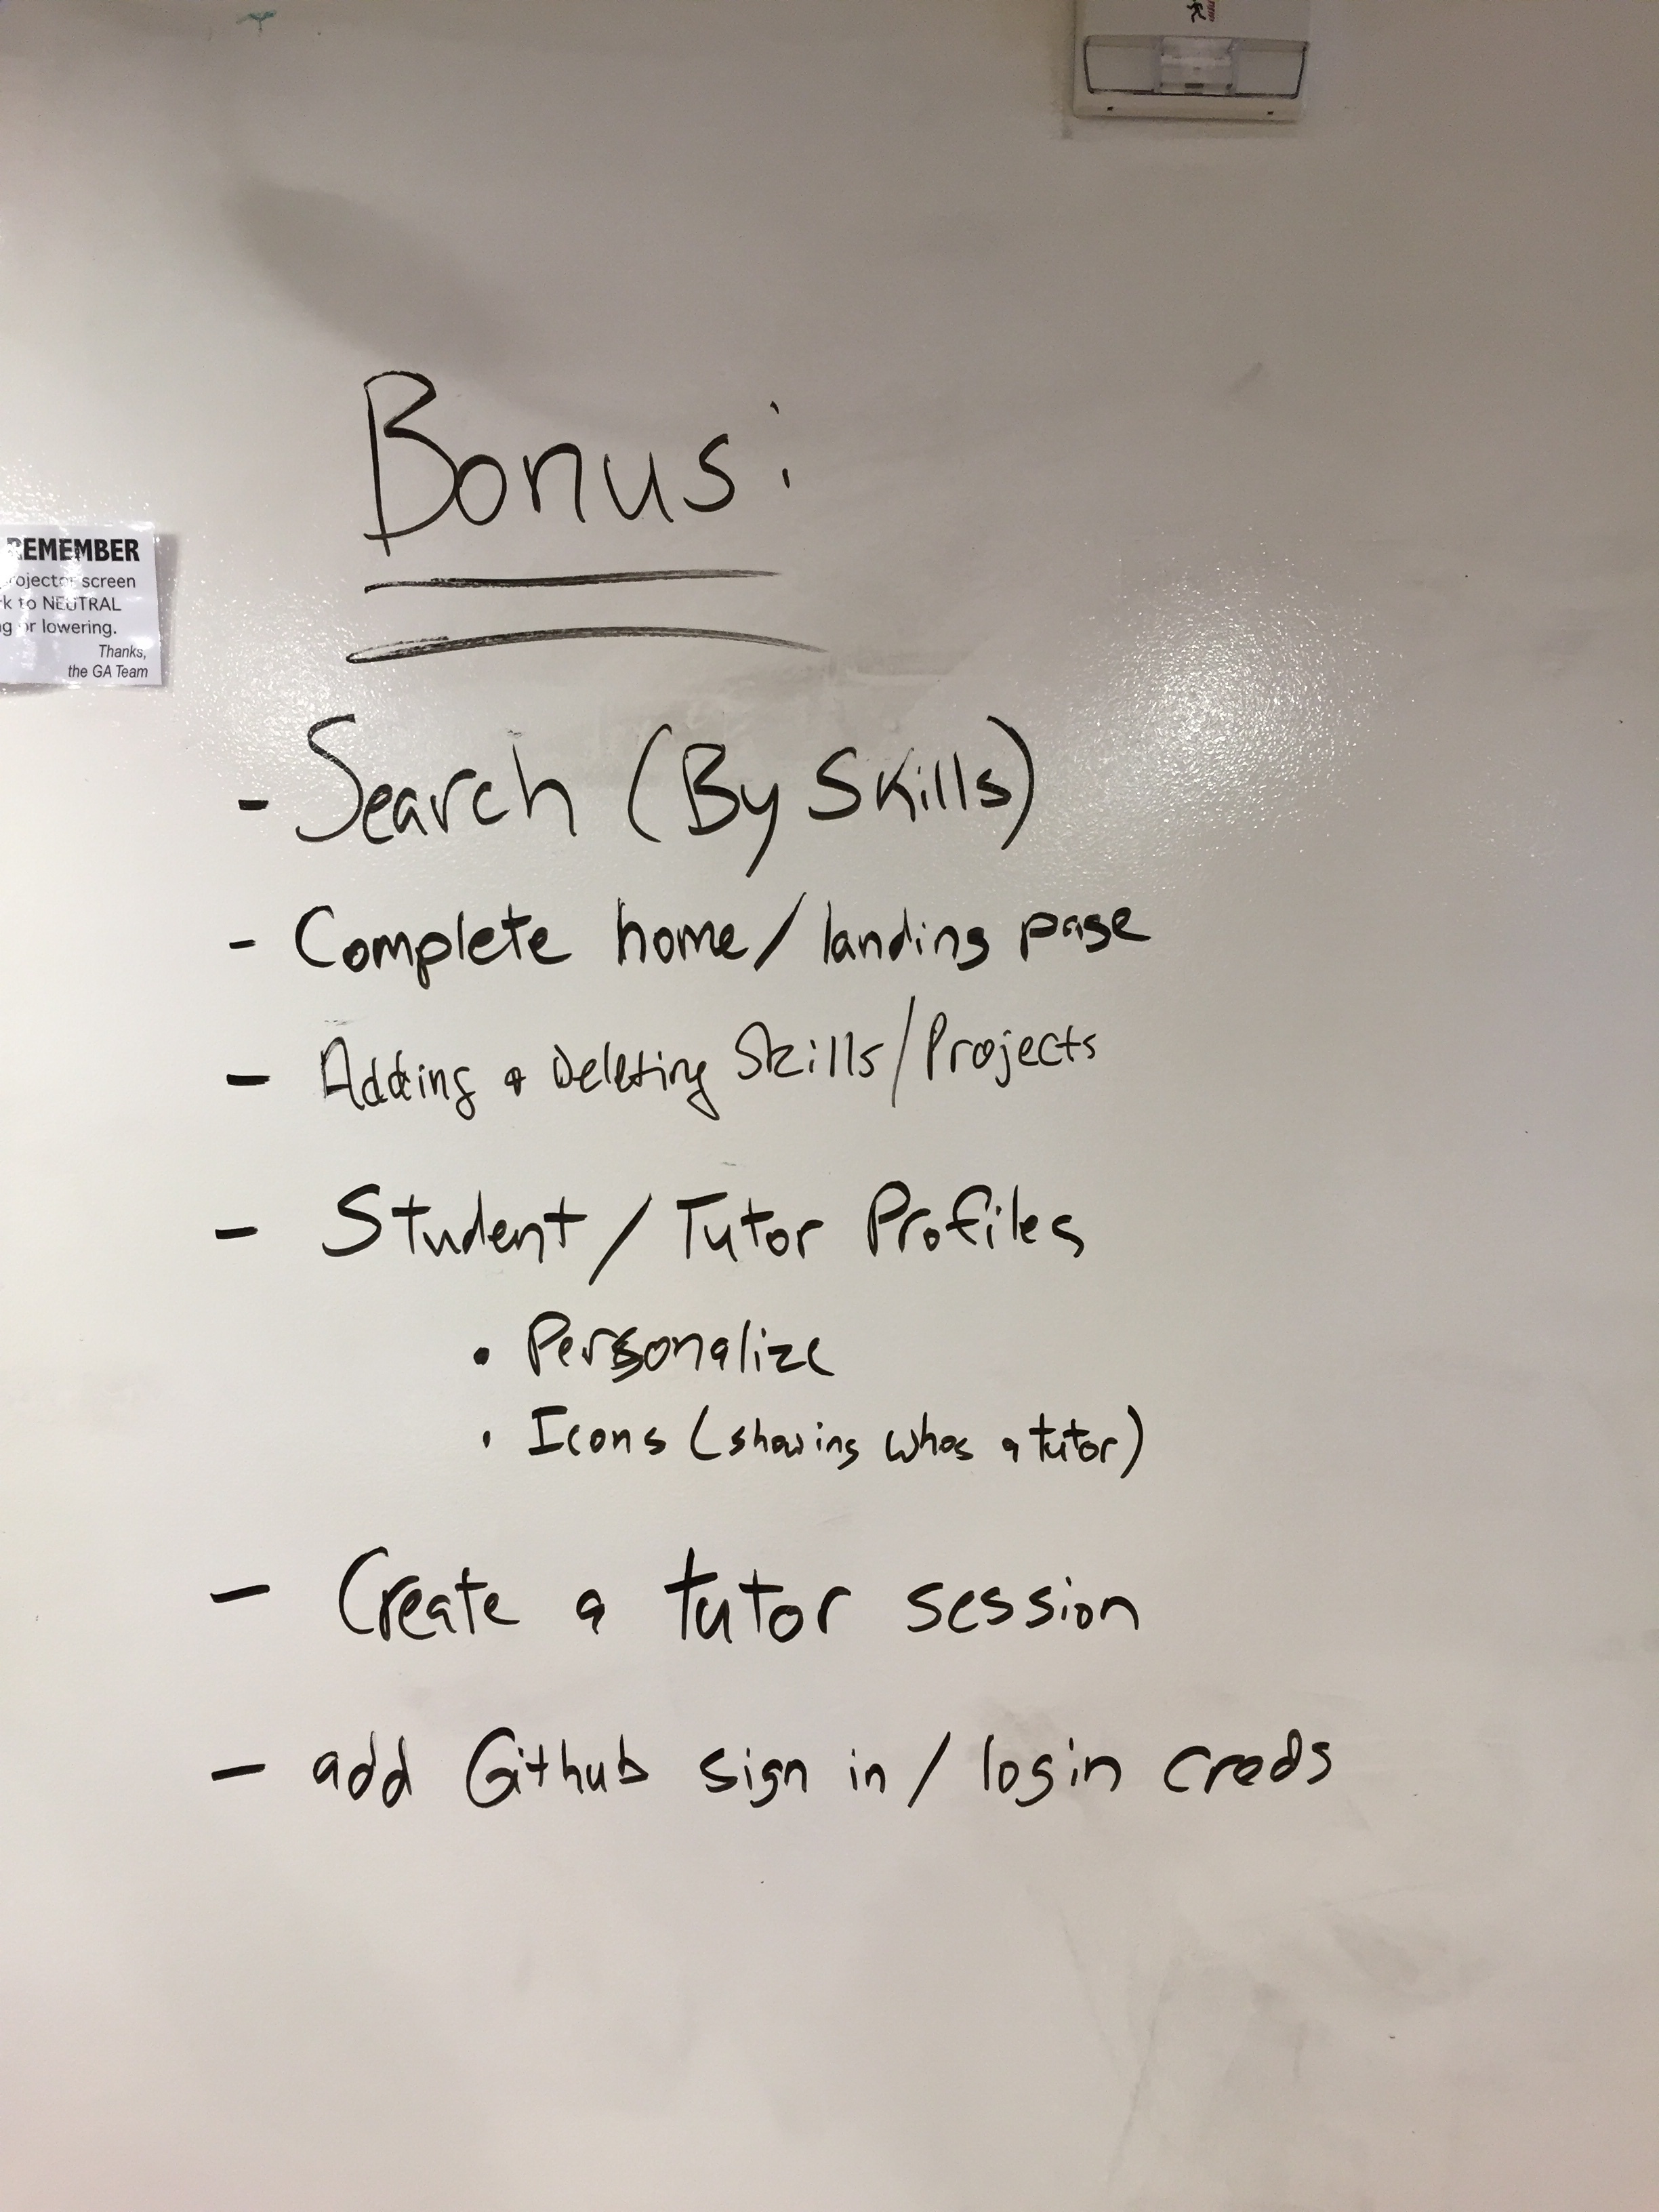 Bonus:
REMEMBER
screen
to NEUTRAL
or lowering.
Thanks,
the GA Team
- Search (By Skills)
- Complete home/landing page
- Adding & Deleting Skills/Projects
- Student/Tutor Profiles
• Personalize
• Icons (showing whos a tutor)
- Create a tutor session
- add Github sign in/login creds